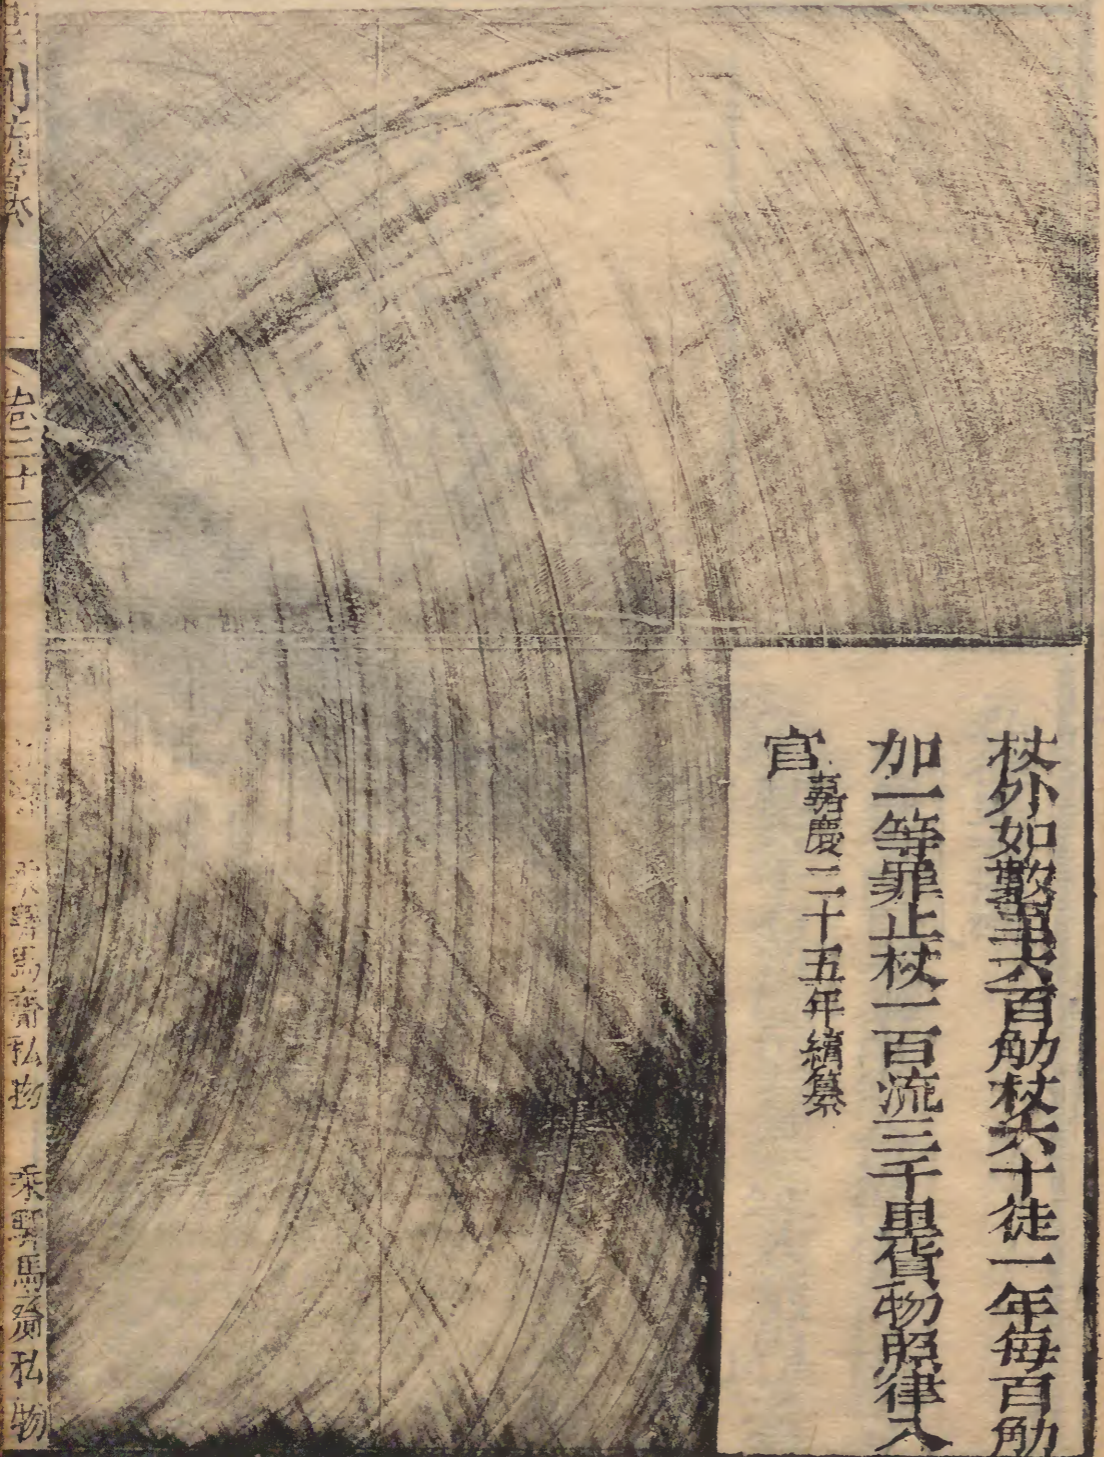 杖外如數至六百觔杖六十徒一年每百觔
加一等罪止杖一百流三千里貨物照律入
官
嘉慶二十五年續纂
卷二十二
乘驛馬齎私物
乘驛馬齎私物